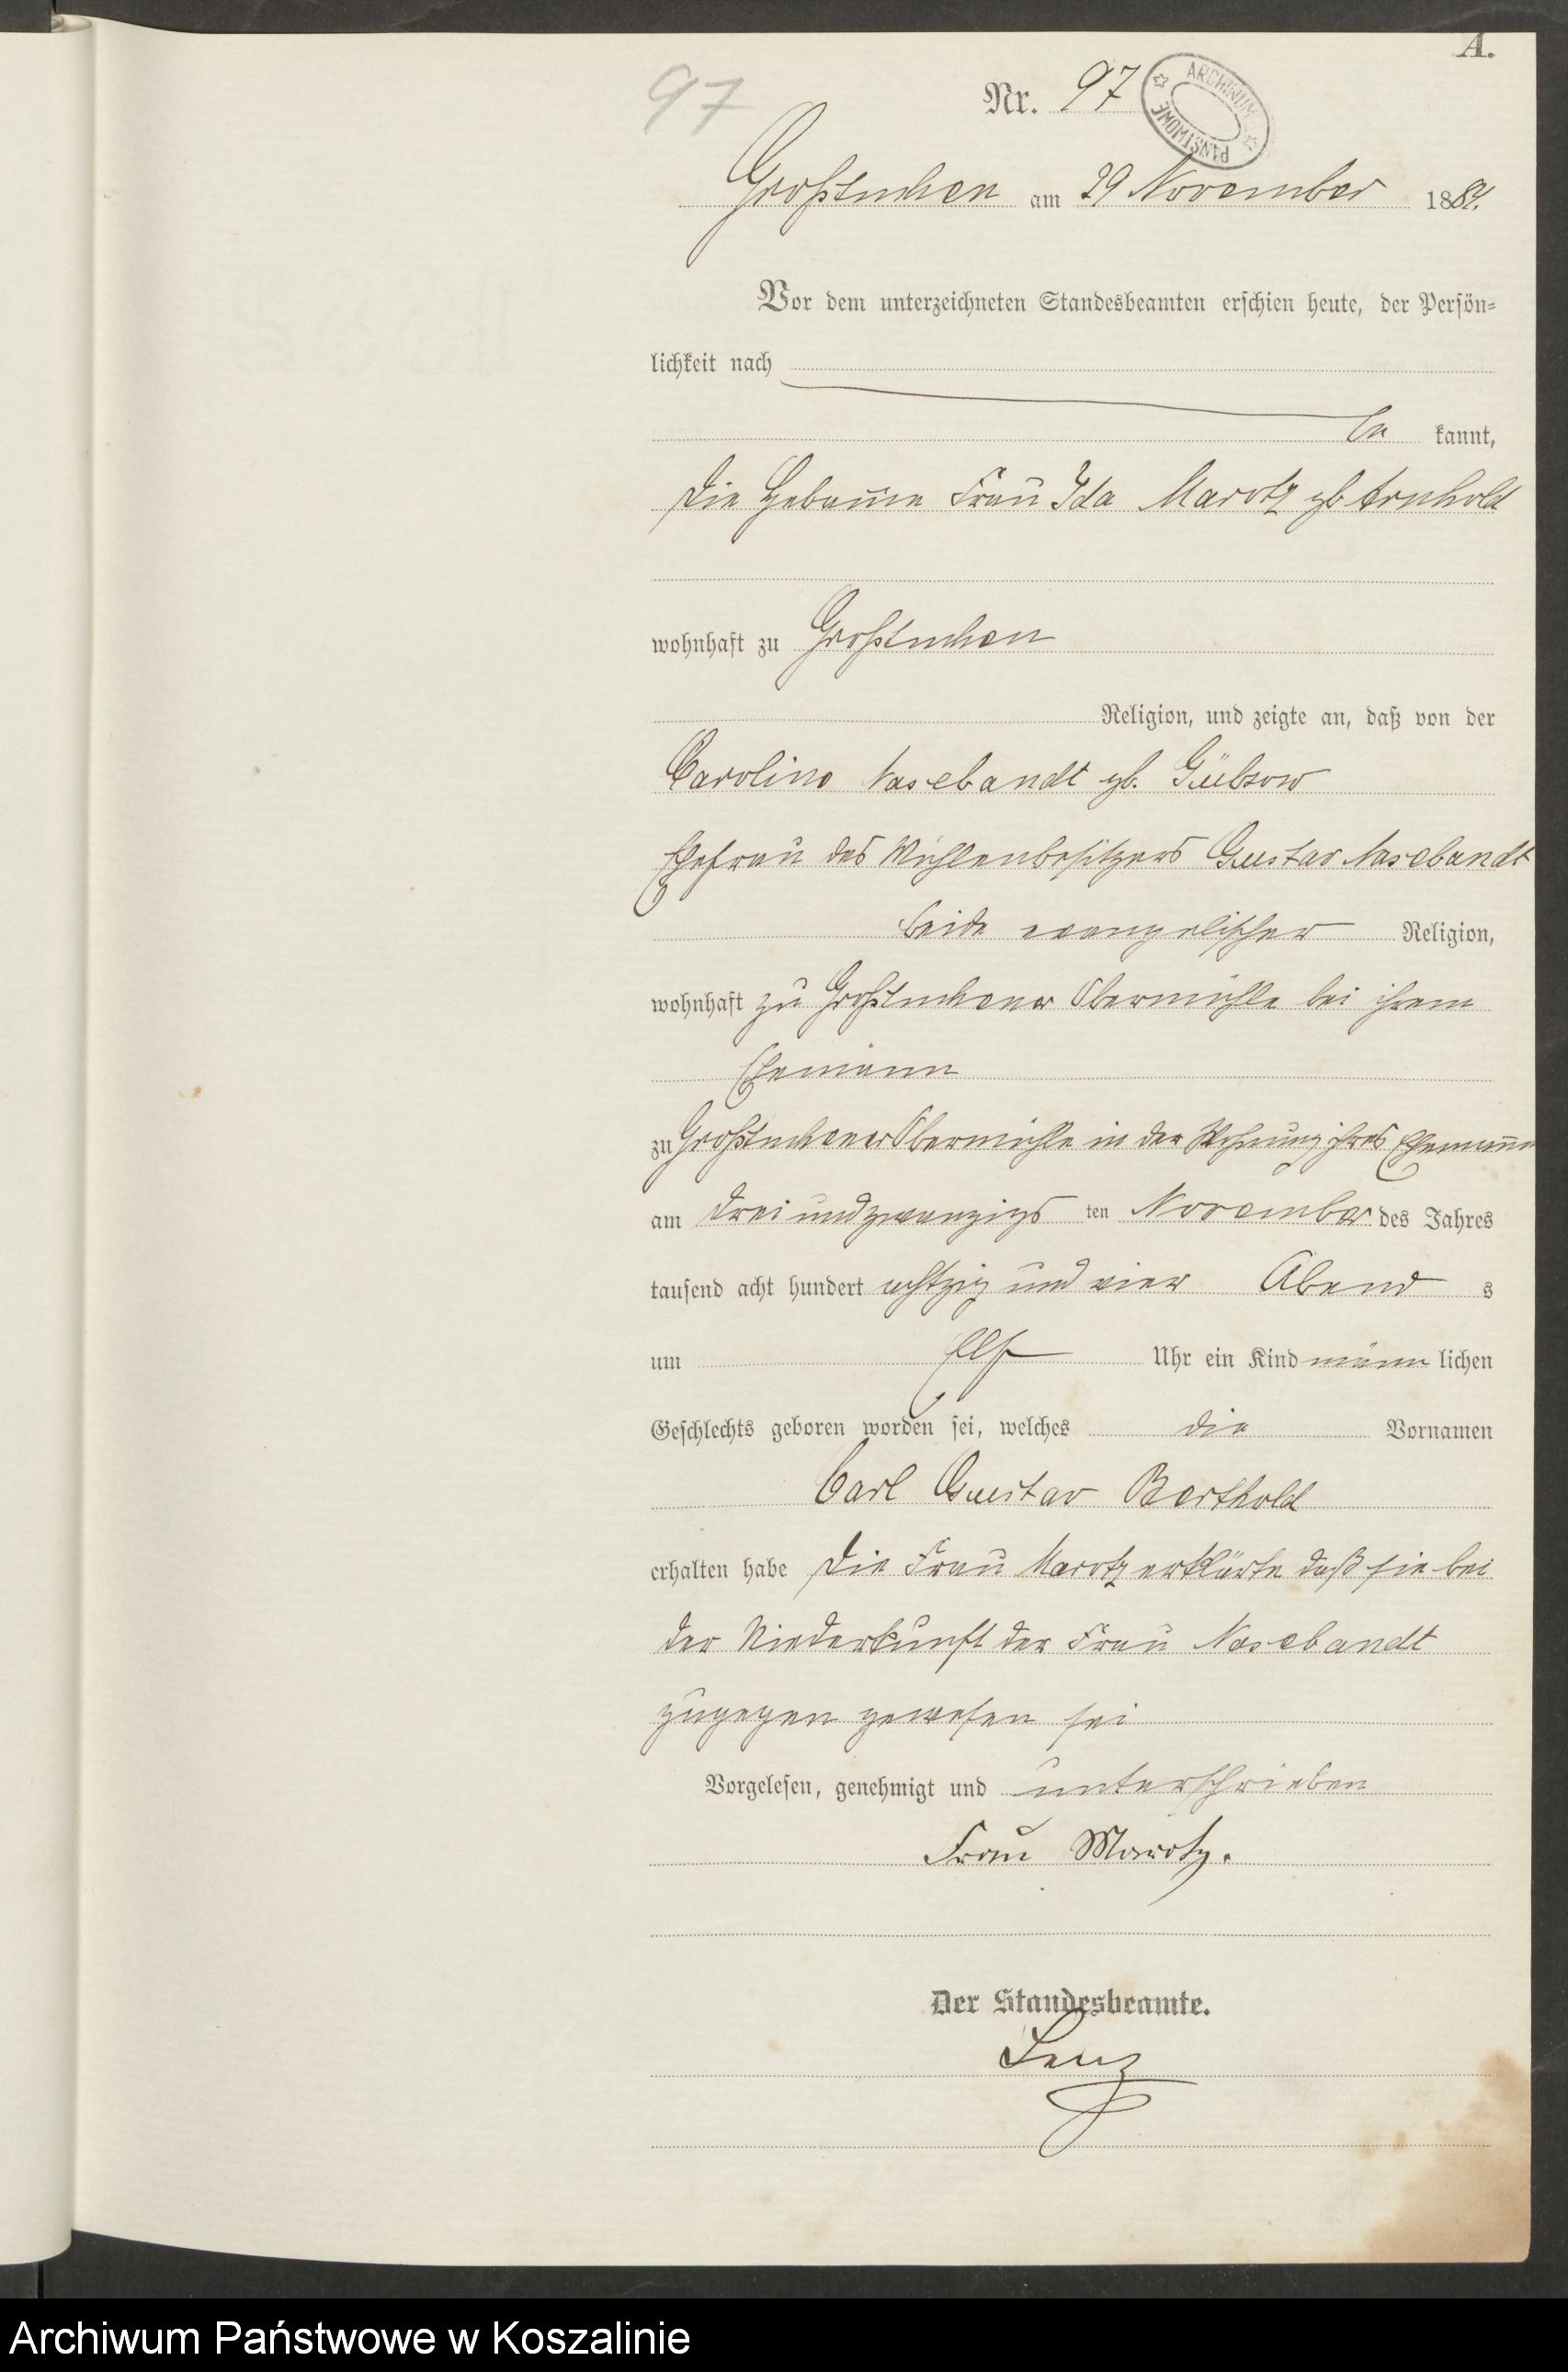 A.
97
Nr. 97
ARCHIWUM PAŃSTWOWE
Großtuchen am 29 November 1884.
Vor dem unterzeichneten Standesbeamten erschien heute, der Persön-
lichkeit nach
be kannt,
die Hebamme Frau Ida Marotz gb Arnhold
wohnhaft zu Großtuchen
Religion, und zeigte an, daß von der
Caroline Nasebandt gb. Gübsow
Ehefrau des Mühlenbesitzers Gustav Nasebandt
beide evangelischer Religion,
wohnhaft zu Großtuchener Obermühle bei ihrem
Ehemann
zu Großtuchener Obermühle in der Wohnung ihres Ehemanns
am dreiundzwanzigs ten November des Jahres
tausend acht hundert achtzig und vier Abend s
um Elf Uhr ein Kind männ lichen
Geschlechts geboren worden sei, welches die Vornamen
Carl Gustav Berthold
erhalten habe Die Frau Marotz erklärte daß sie bei
der Niederkunft der Frau Nasebandt
zugegen gewesen sei
Vorgelesen, genehmigt und unterschrieben
Frau Marotz.
Der Standesbeamte.
Lenz
Archiwum Państwowe w Koszalinie